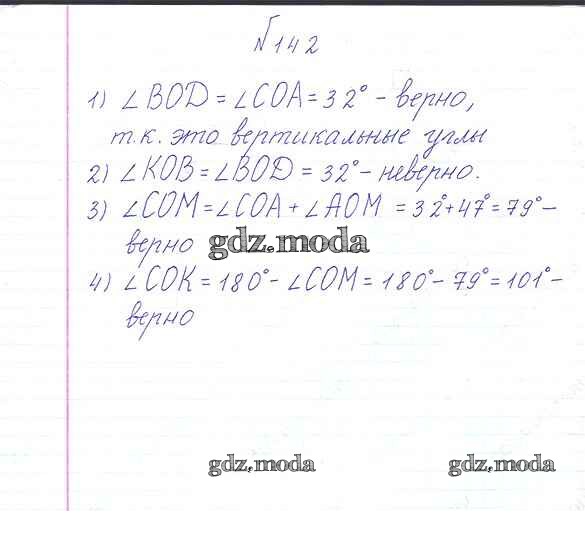 №142
1) ∠BOD = ∠COA = 32° - верно,
т.к. это вертикальные углы
2) ∠KOB = ∠BOD = 32° - неверно.
3) ∠COM = ∠COA + ∠AOM = 32° + 47° = 79° -
верно
gdz.moda
4) ∠COK = 180° - ∠COM = 180° - 79° = 101° -
верно
gdz.moda
gdz.moda